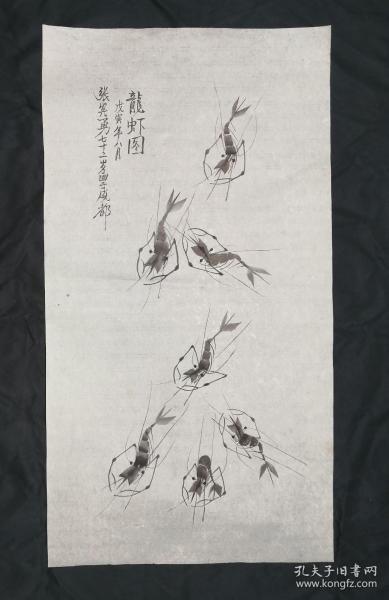 龍虾图
戊寅年八月
張英勇七十二岁画于成都
孔夫子旧书网
www.kongfz.com